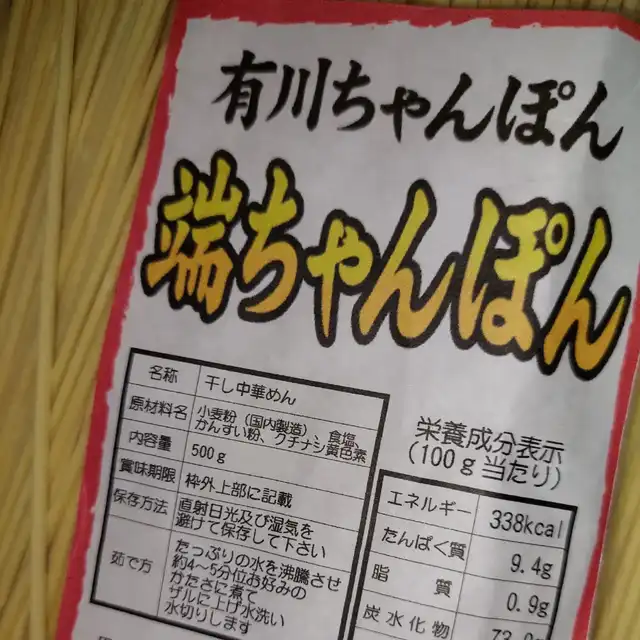 有川ちゃんぽん
端ちゃんぽん
名称 干し中華めん
原材料名 小麦粉（国内製造）、食塩、
かんすい粉、クチナシ黄色素
内容量 500ｇ
賞味期限 枠外上部に記載
保存方法 直射日光及び湿気を
避けて保存して下さい
茹で方 たっぷりの水を沸騰させ
約4～5分位お好みの
かたさに煮て
ザルに上げ水洗い
水切りします
栄養成分表示
（100ｇ当たり）
エネルギー 338kcal
たんぱく質 9.4g
脂質 0.9g
炭水化物